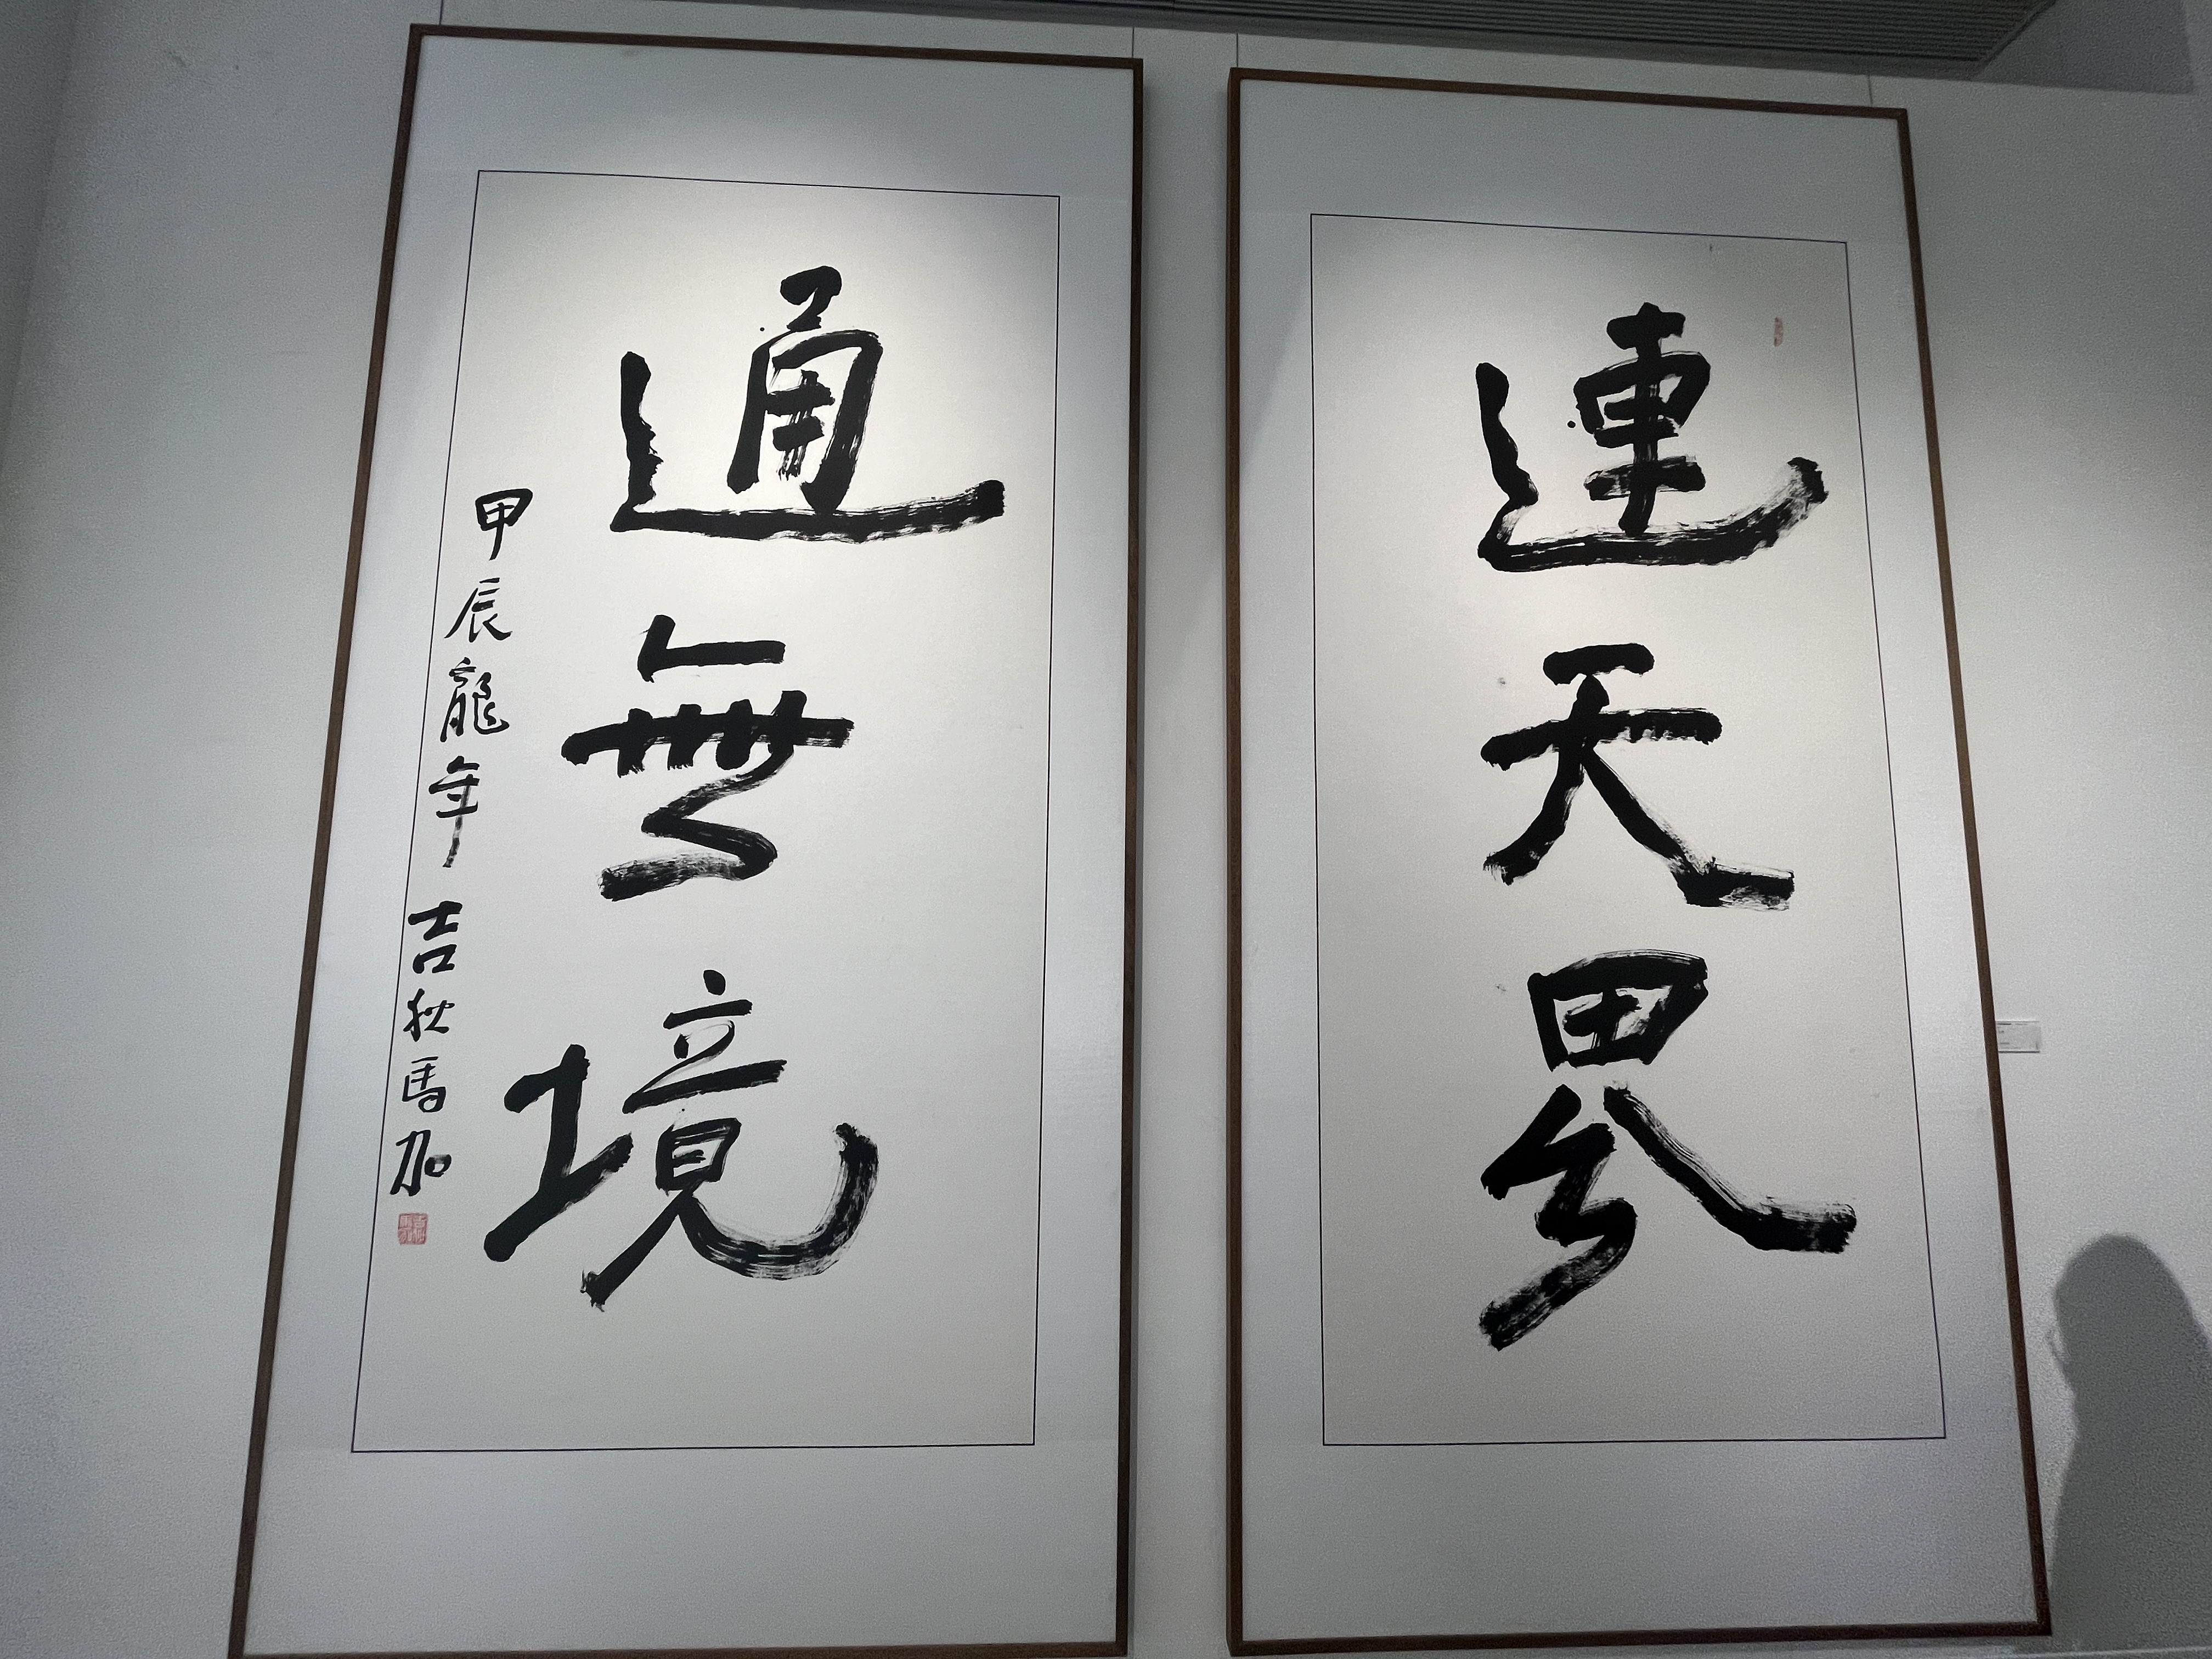 連天界
通無境
甲辰龍年 吉狄馬加